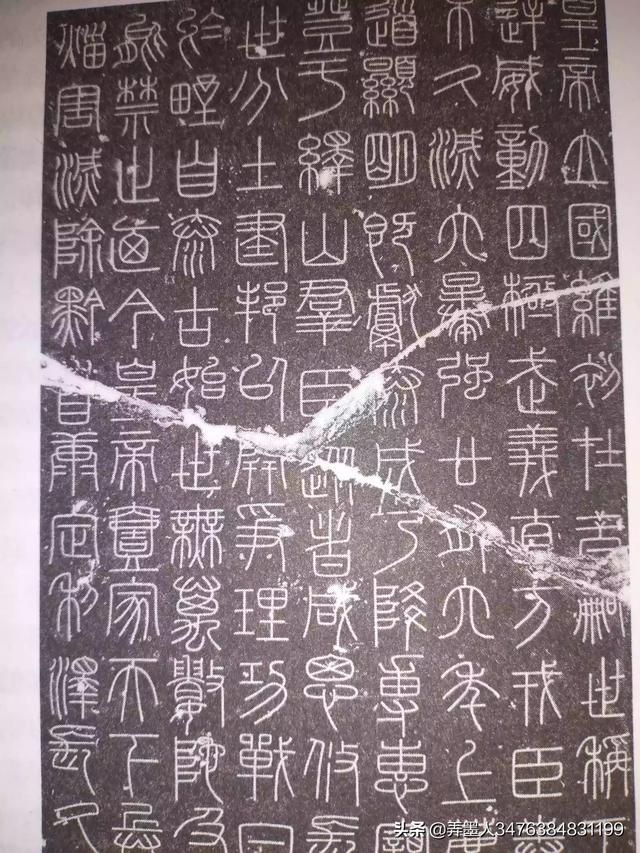 皇帝立國維初在昔嗣世稱
逆威動四極武義直方戎臣
不久滅六暴強廿有六年上
道顯明既獻泰成乃降專惠
登于繹山群臣從者咸思攸長
世分土建邦以開爭理功戰日
於野自泰古始世無萬數陀及
能禁止廼今皇帝壹家天下兵
災害滅除黔首康定利澤長久
头条@弄墨人3476384831199